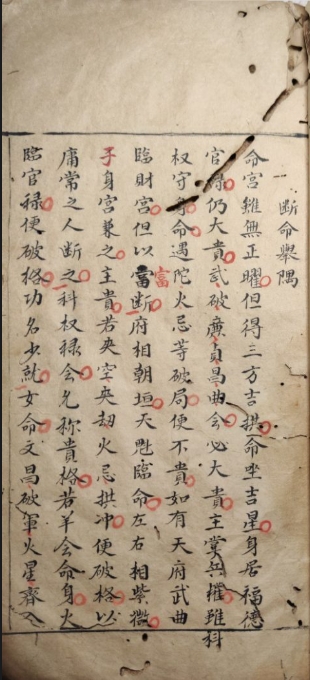 断命舉隅
命宫雖無正曜但得三方吉拱命坐吉星身居福德
官祿仍大貴武破廉貞昌曲会必大貴主掌兵權雖科
权守身命遇陀火忌等破局便不貴如有天府武曲
臨財宫但以富断府相朝垣天魁臨命左右相紫微
子身宫兼之主貴若夹空夹劫火忌拱冲便破格以
庸常之人断之科权禄会允称貴格若羊会命身火
臨官祿便破格功名少就女命文昌破軍火星齊又